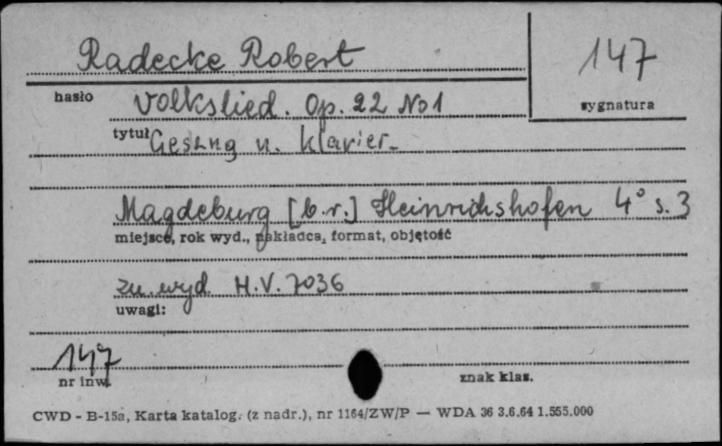 Radecke Robert
147
hasło
Volkslied. Op. 22 No 1
sygnatura
tytuł Gesang u. Klavier.
Magdeburg [b.r.] Heinrichshofen 4° s. 3
miejsce, rok wyd., nakładca, format, objętość
zn. wyd H.V. 7036
uwagi:
147
nr inw.
znak klas.
CWD - B-15a, Karta katalog. (z nadr.), nr 1164/ZW/P — WDA 36 3.6.64 1.555.000